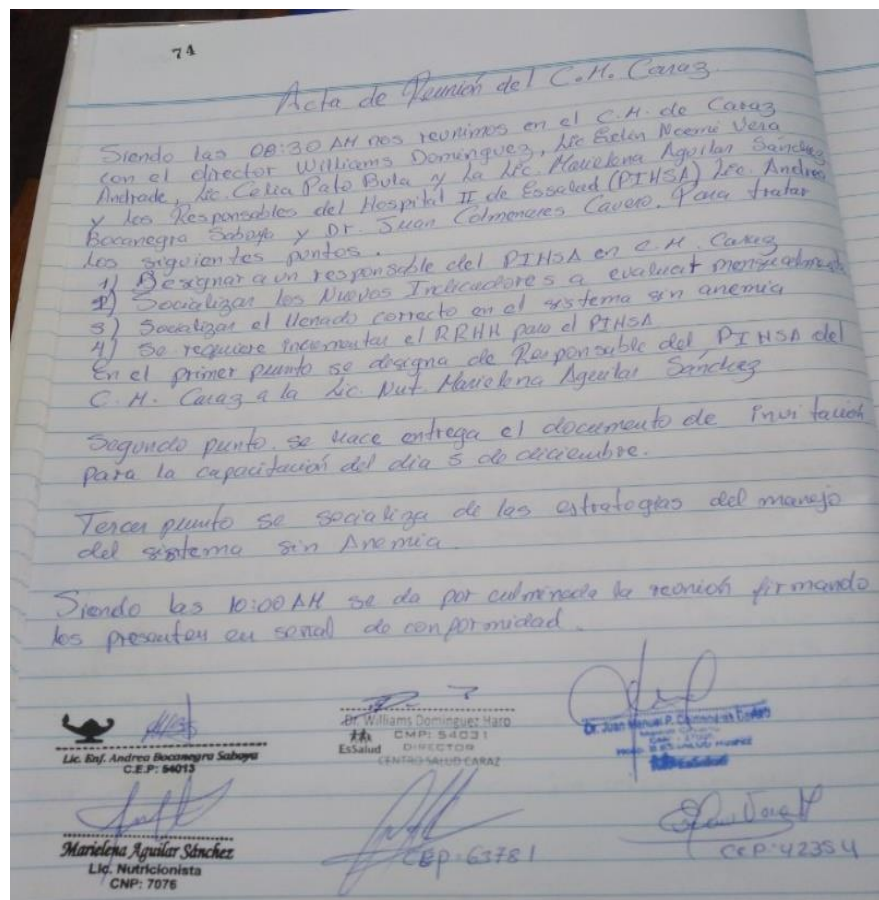 74
Acta de Reunión del C.M. Caraz
Siendo las 08:30 AM nos reunimos en el C.M. de Caraz
con el director Williams Dominguez, Lic Evelin Noemi Vera
Andrade, Lic. Celia Pato Bula y La Lic. Marielena Aguilar Sánchez
y los Responsables del Hospital II de Essalud (PIHSA) Lic. Andrea
Bocanegra Saboya y Dr. Juan Colmenares Cavero. Para tratar
los siguientes puntos.
1) Designar a un responsable del PIHSA en C.M. Caraz
2) Socializar los Nuevos Indicadores a evaluar mensualmente
3) Socializar el llenado correcto en el sistema sin anemia
4) Se requiere incrementar el RRHH para el PIHSA.
En el primer punto se designa de Responsable del PIHSA del
C.M. Caraz a la Lic. Nut. Marielena Aguilar Sánchez
Segundo punto. se hace entrega el documento de invitación
para la capacitación del dia 5 de diciembre.
Tercer punto se socializa de las estrategias del manejo
del sistema sin Anemia
Siendo las 10:00 AM se da por culminada la reunión firmando
los presentes en señal de conformidad.
Lic. Enf. Andrea Bocanegra Saboya
C.E.P: 64013
Dr. Williams Dominguez Haro
CMP: 54031
EsSalud DIRECTOR
CENTRO SALUD CARAZ
Dr. Juan Manuel P. Colmenares
EsSalud
Marielena Aguilar Sánchez
Lic. Nutricionista
CNP: 7076
CEP: 63781
CEP: 42354